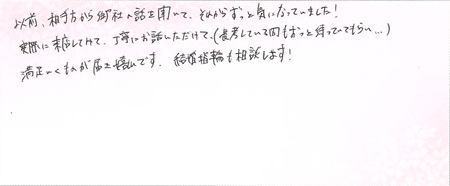 以前、相手方から御社の話を聞いて、それからずっと気になっていました!
実際に来店してみて、丁寧にお話いただけて、(長考している間もずっと待っていてもらい…)
満足いくものが届き嬉しいです。結婚指輪も相談します!